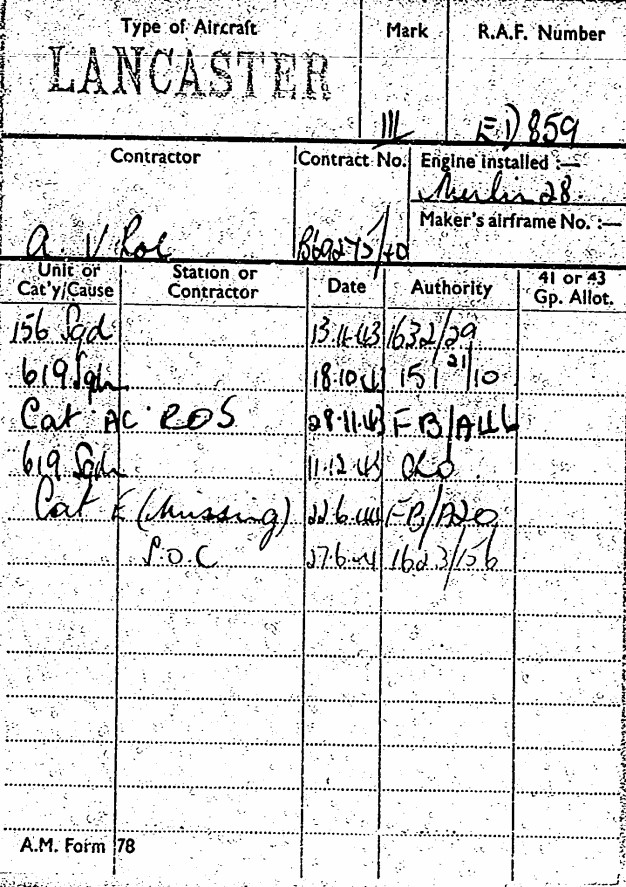 Type of Aircraft Mark R.A.F. Number
LANCASTER III ED 859
Contractor Contract No. Engine installed :—
Merlin 28.
Maker's airframe No. :—
A. V Roe B69275/40
Unit or Cat'y/Cause Station or Contractor Date Authority 41 or 43 Gp. Allot.
156 Sqd 1632/29
619 Sqdn 18.10.43 151 21/10
Cat AC ROS 28.11.43 FB/
619 Sqdn 11.12.43
Cat E (Missing) 22.6.44 FB/A20
S.O.C 27.6.44 1623/156
A.M. Form 78